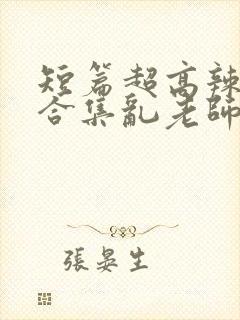 短篇超高辣
合集亂老師
張晏生